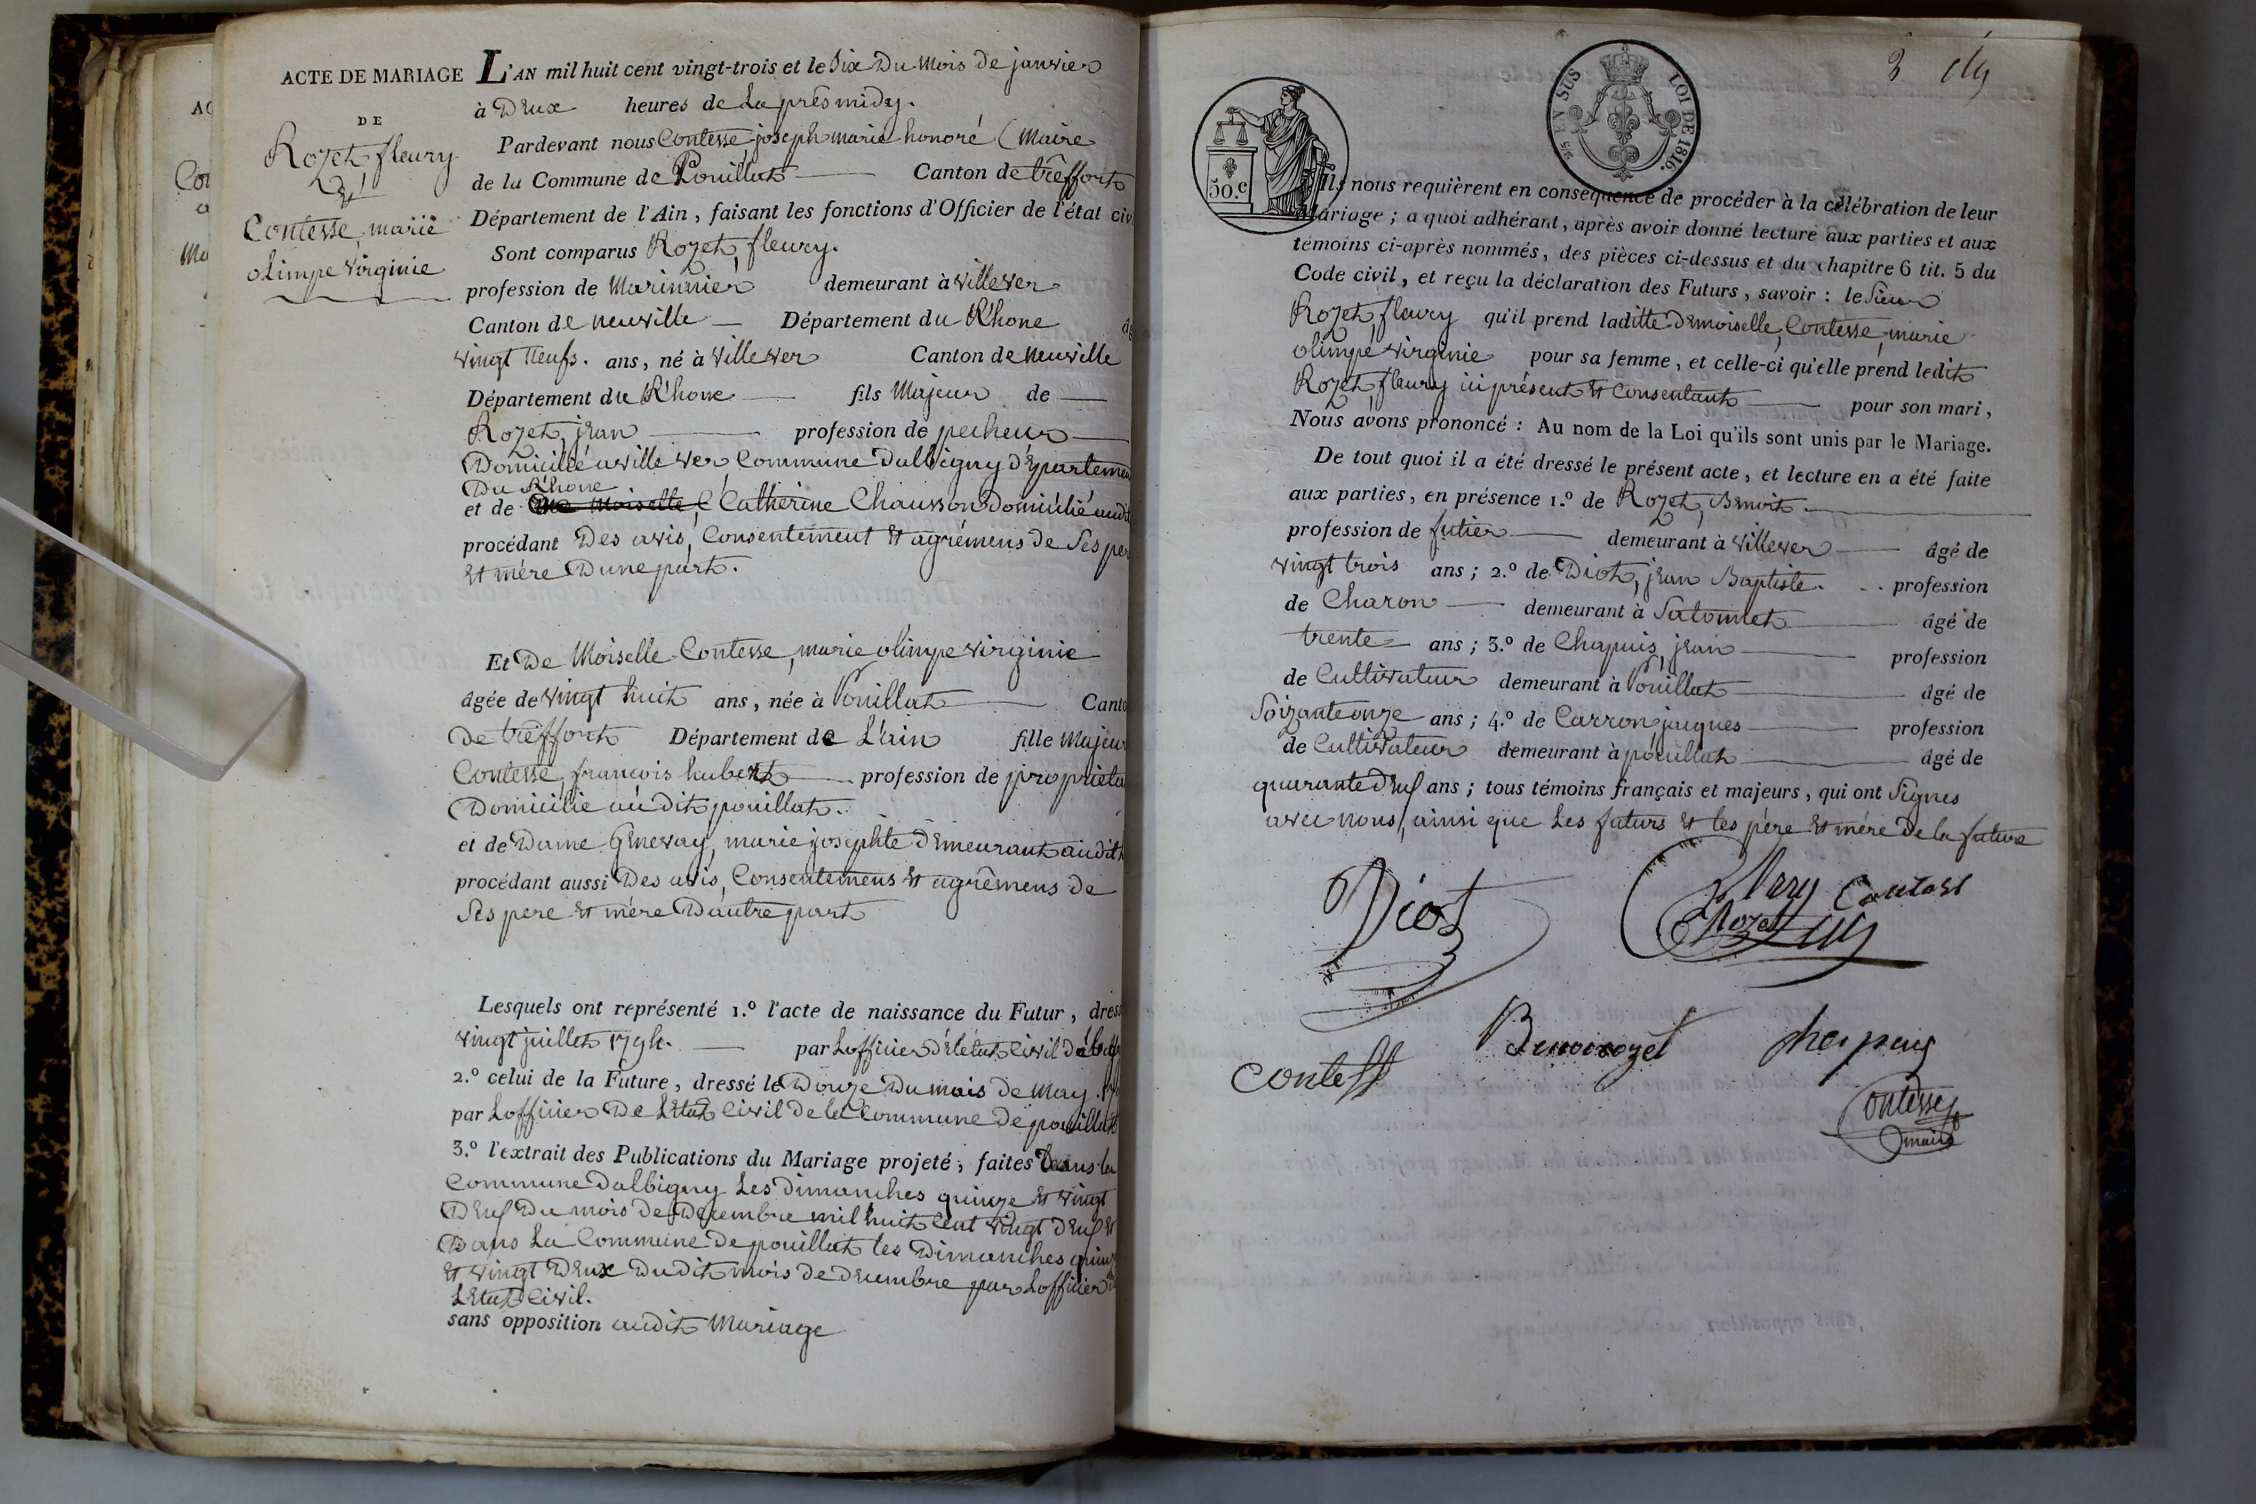 AC
Co
Ma
ACTE DE MARIAGE
DE
Rozet, fleury
&
Contesse, marie
olimpe virginie
L'AN mil huit cent vingt-trois et le Six Du Mois de janvier
à Deux heures de La prés midy.
Pardevant nous Contesse, joseph marie honoré (Maire
de la Commune de Pouillat Canton de trêffort
Département de l'Ain, faisant les fonctions d'Officier de l'état civ
Sont comparus Rozet, fleury.
profession de Marinnier demeurant à villever
Canton de neuville Département du Rhone
vingt neufs. ans, né à villever Canton de neuville
Département du Rhone fils Majeur de
Rozet, jean profession de pecheur
Domicilié a villever Commune Dalbigny départemen
Du Rhone
et de Catherine Chausson Domicilié audi
procédant Des avis, Consentement et agrémens de Ses per
et mére D'une part.
Et De Moiselle Contesse, marie olimpe virginie
âgée de vingt huit ans, née à Pouillat Canto
de treffort Département de L'ain fille Majeur
Contesse, francois hubert profession de proprieta
Domicilié au dit pouillat.
et de Dame Genevay, marie josephte demeurant audit
procédant aussi Des avis, Consentemens et agrêmens de
Ses pere et mére D'autre part
Lesquels ont représenté 1.º l'acte de naissance du Futur, dres
vingt juillet 1794. par Lofficier détat Civil
2.º celui de la Future, dressé le Douze Du mois de May
par Lofficier De Létat Civil de la Commune de pouillat
3.º l'extrait des Publications du Mariage projeté, faites Dans la
Commune Dalbigny Les Dimanches quinze et vingt
Deux Du mois de Decembre mil huit Cent vingt Deux et
Dans La Commune De pouillat les Dimanches quinz
et vingt Deux Du dit mois de decembre par Lofficier
Létat Civil.
sans opposition audit Mariage
3
50.c
EN SUS LOI DE 1816.
Ils nous requièrent en conséquence de procéder à la célébration de leur
Mariage; a quoi adhérant, après avoir donné lecture aux parties et aux
témoins ci-après nommés, des pièces ci-dessus et du chapitre 6 tit. 5 du
Code civil, et reçu la déclaration des Futurs, savoir: le Sieur
Rozet, fleury qu'il prend laditte Demoiselle, Contesse, marie
olimpe virginie pour sa femme, et celle-ci qu'elle prend ledit
Rozet, fleury ici présent et Consentant pour son mari,
Nous avons prononcé: Au nom de la Loi qu'ils sont unis par le Mariage.
De tout quoi il a été dressé le présent acte, et lecture en a été faite
aux parties, en présence 1.º de Rozet, Benoit.
profession de futier demeurant à villever âgé de
vingt trois ans; 2.º de Diot, jean Baptiste. profession
de Charon demeurant à Satonnet âgé de
trente ans; 3.º de Chapuis, jean profession
de Cultivateur demeurant à Pouillat âgé de
Soizante onze ans; 4.º de Carron jacques profession
de Cultivateur demeurant à pouillat âgé de
quarante deux ans; tous témoins français et majeurs, qui ont Signés
avec nous, ainsi que Les futurs et les père et mére de la future
Diot
Rozet
Contesse
Benoi rozet
Contess
Contesse
maire